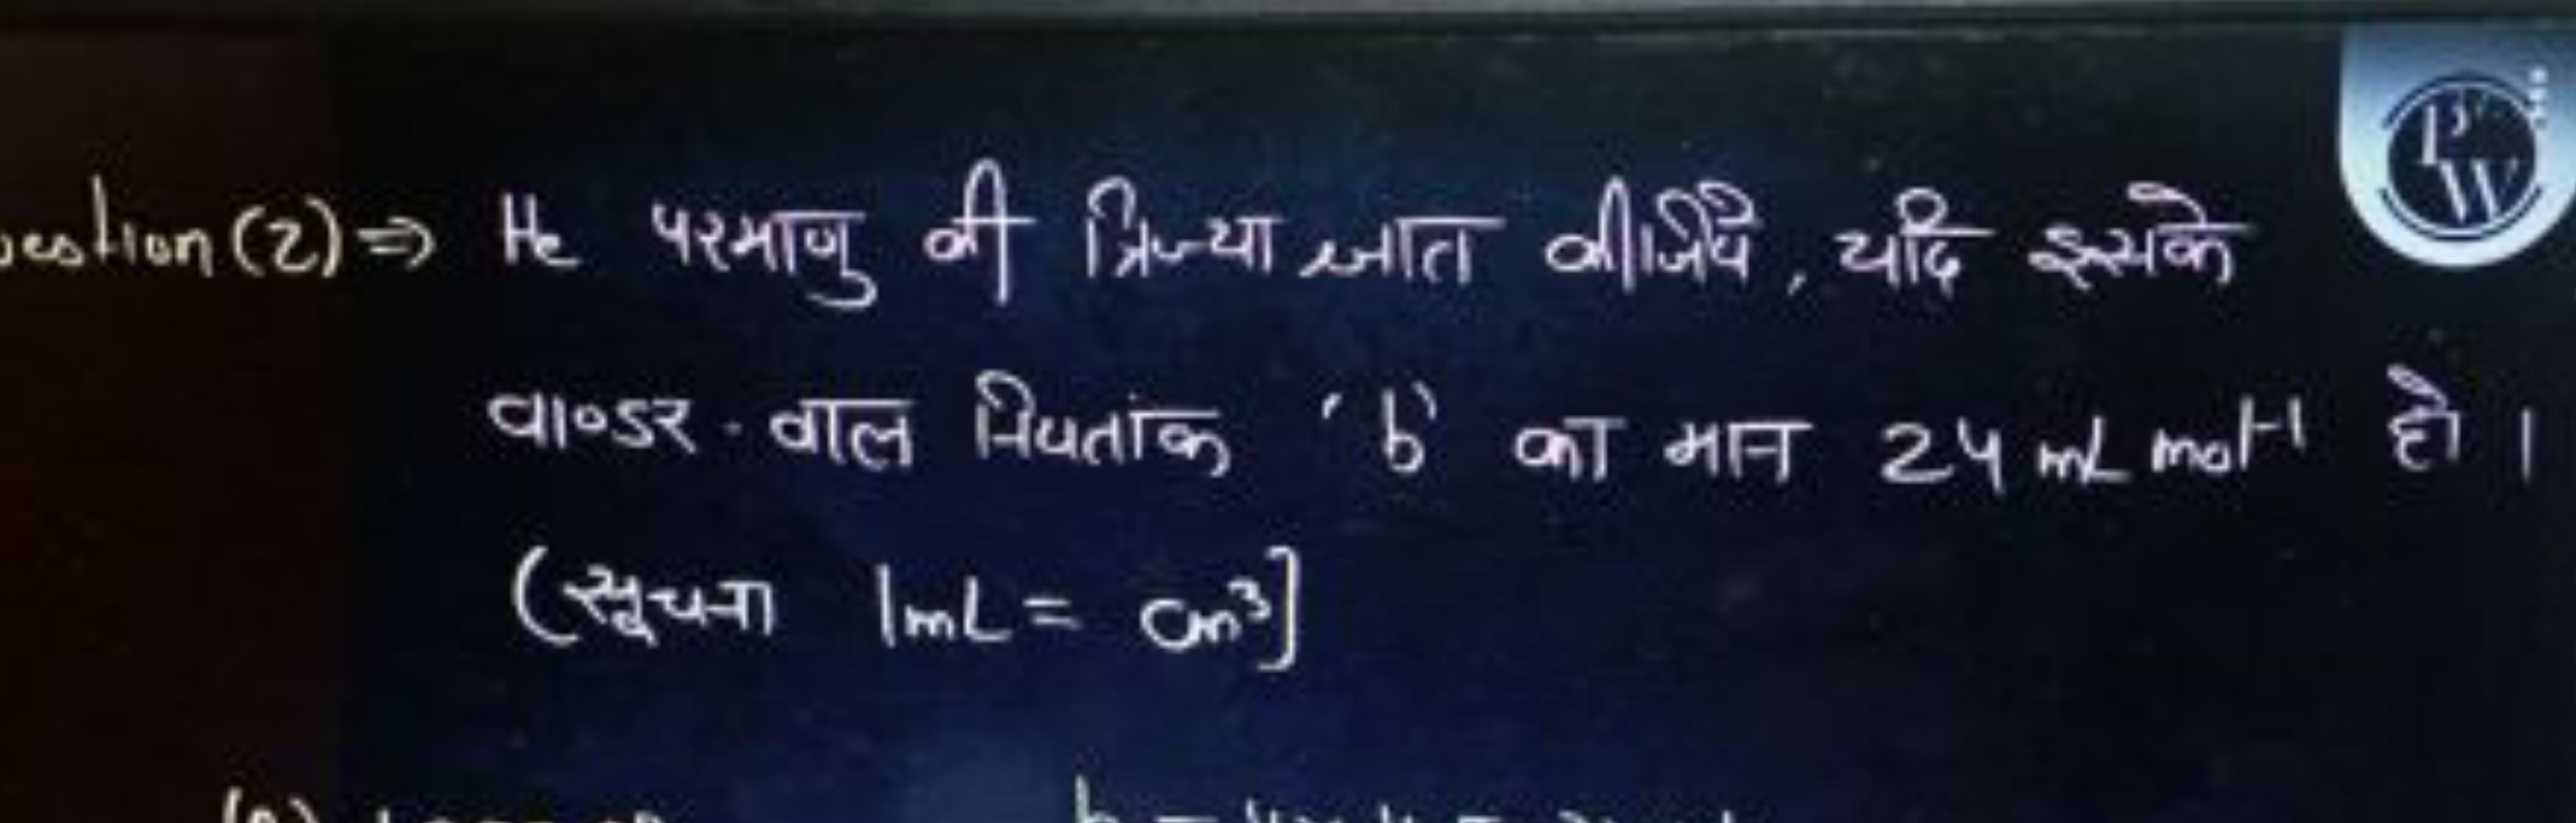 uestion (2) ⇒ He परमाणु की त्रिज्या ज्ञात कीजिये, यदि इसके
PW
वाण्डर-वाल नियतांक 'b' का मान 24 mL mol⁻¹ हो।
(सूचना 1mL = cm³]